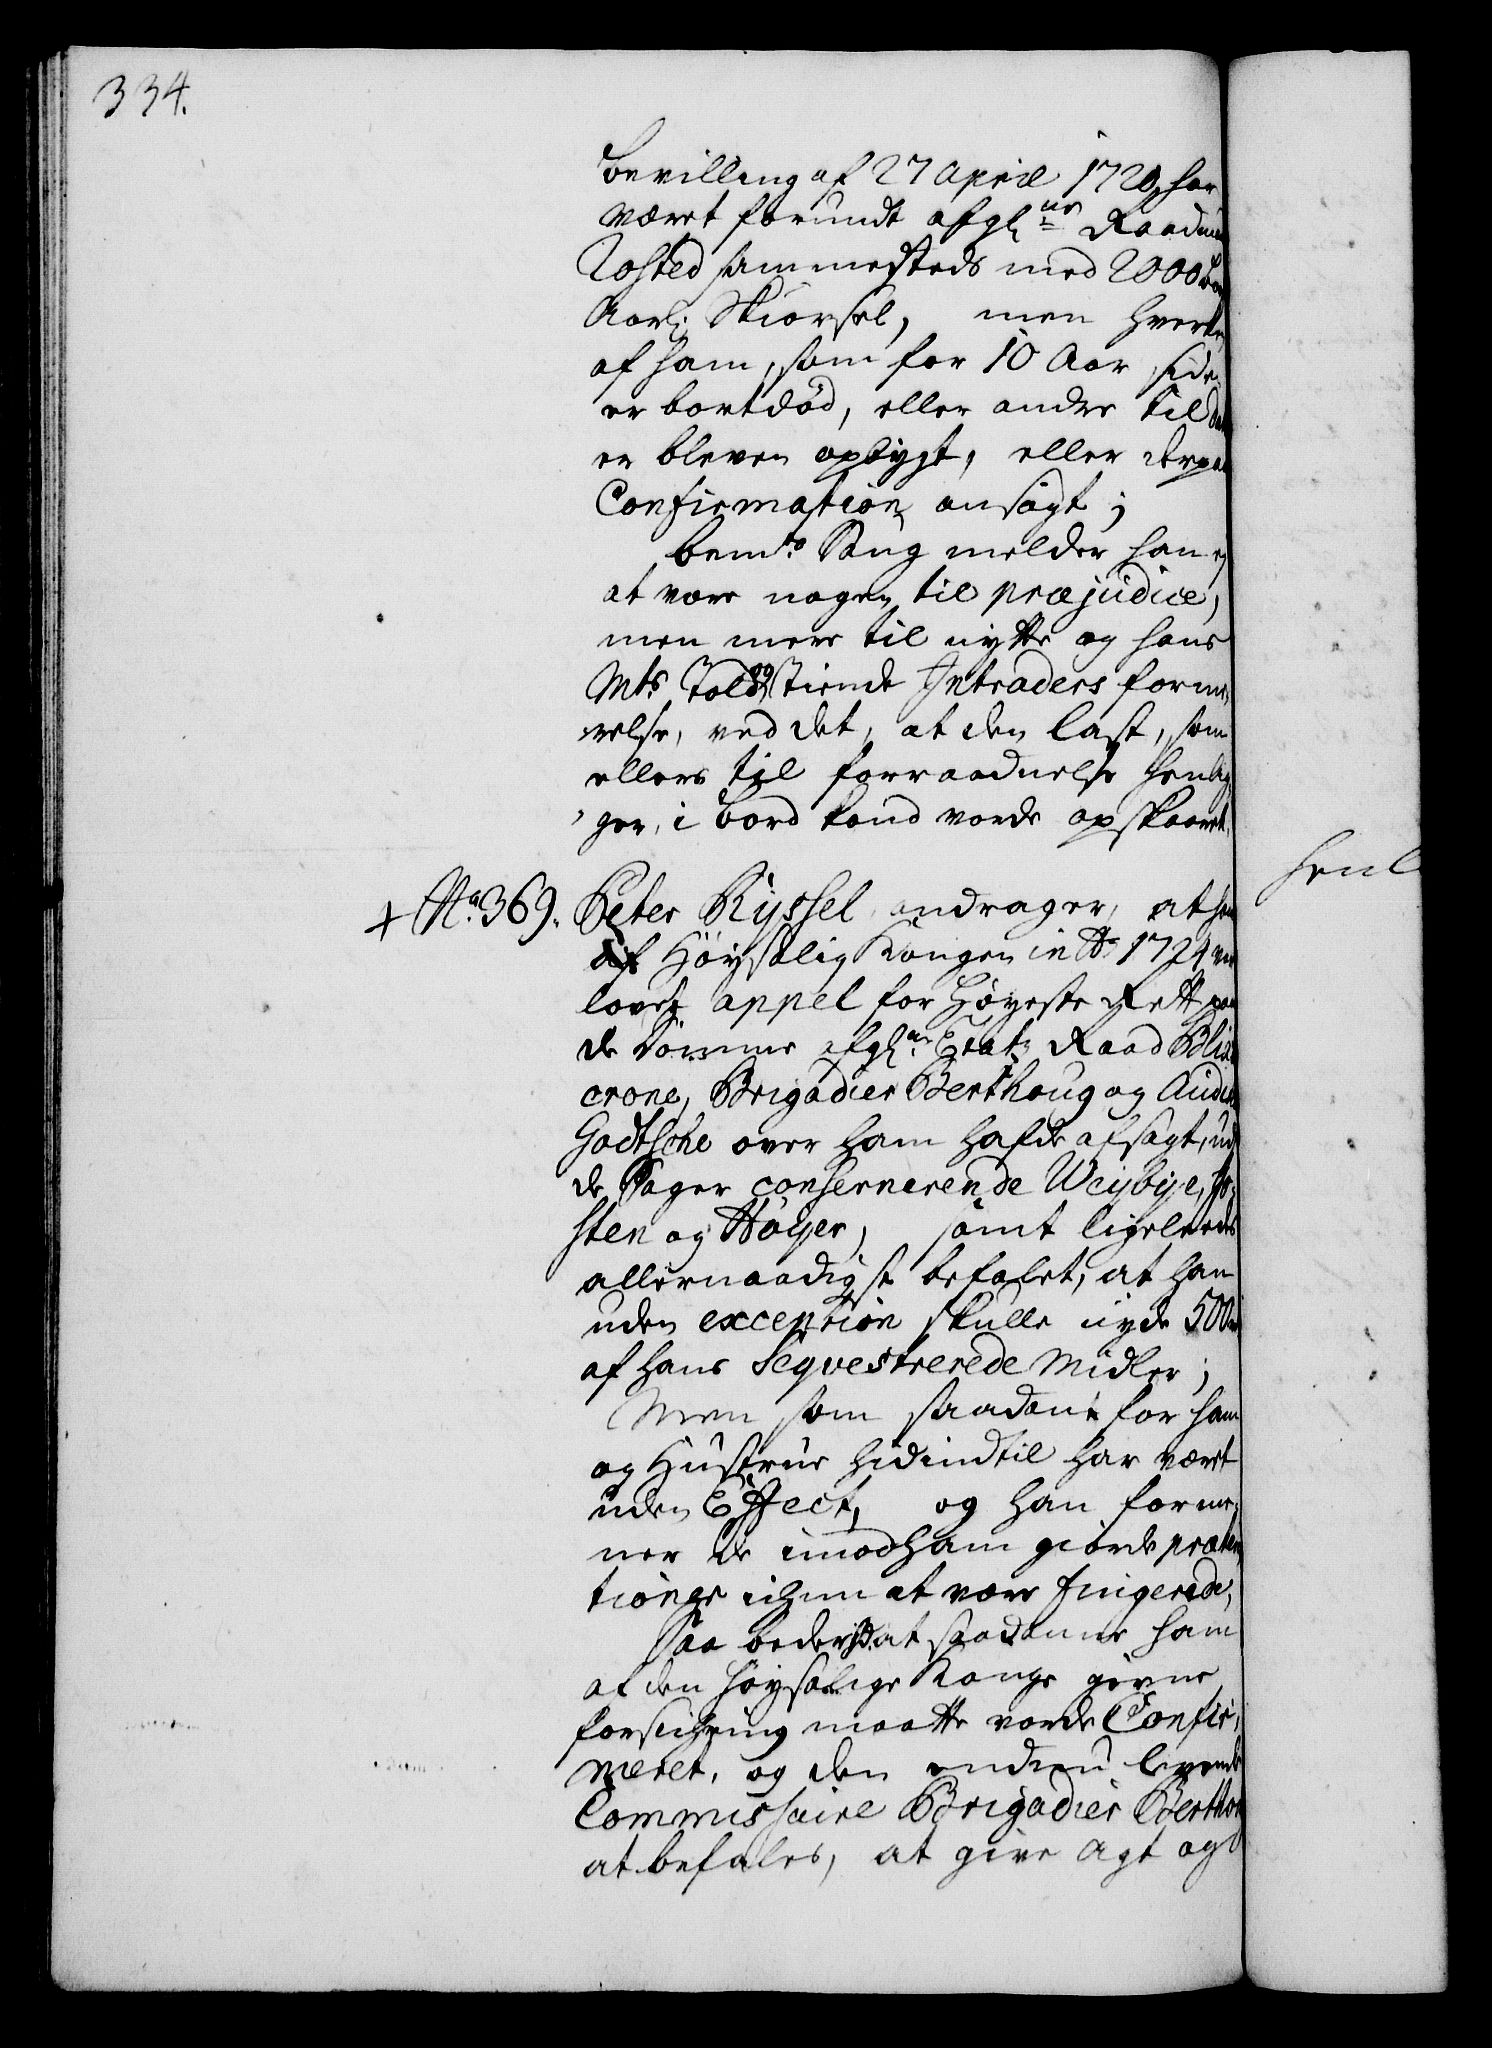 334.
bevilling af 27 April 1720, har
været forundt afgl. Raadm
Tosted sammesteds med 2000 bor
Aarl: Skiørsel, men hverken
af ham, som for 10 Aar side
er bortdød, eller andre til
er bleven opbygt, eller derpaa
Confirmation ansøgt;
bemte Saug melder han ej
at være nogen til præjudice,
men mere til nytte og hans
Mts Told og Tiende Intraders forme,
relse, ved det, at den last, som
ellers til forraadnelse henlig
ger, i bord kand vorde opskaaret.
+ No. 369. Peter Ryssel andrager, at han
af Høysalig Kongen in Ao 1724 
lovet appel for Høyeste Rett paa
de domme afgl. Etats Raad Blix
crone, Brigadier Berthoug og Audi
Godtsche over ham hafde afsagt, ud
de Sager consernerende Weybye,
sten og Høyer, samt ligeleeds
allernaadigst befalet, at han
uden exception skulle nyde 500
af hans Seqvestrerede Midler;
Men som saadant for ham
og Hustrue hidindtil har været
uden Effect, og han forme,
ner de imod ham giorde præten
tioner ickun at være fingerede,
Saa beder hand at saadanne ham
af den høysalige Konge givne
forsichring maatte vorde Confir,
meret, og den endnu levende
Commissaire Brigadier Berthou
at befales, at give Agt og
henl